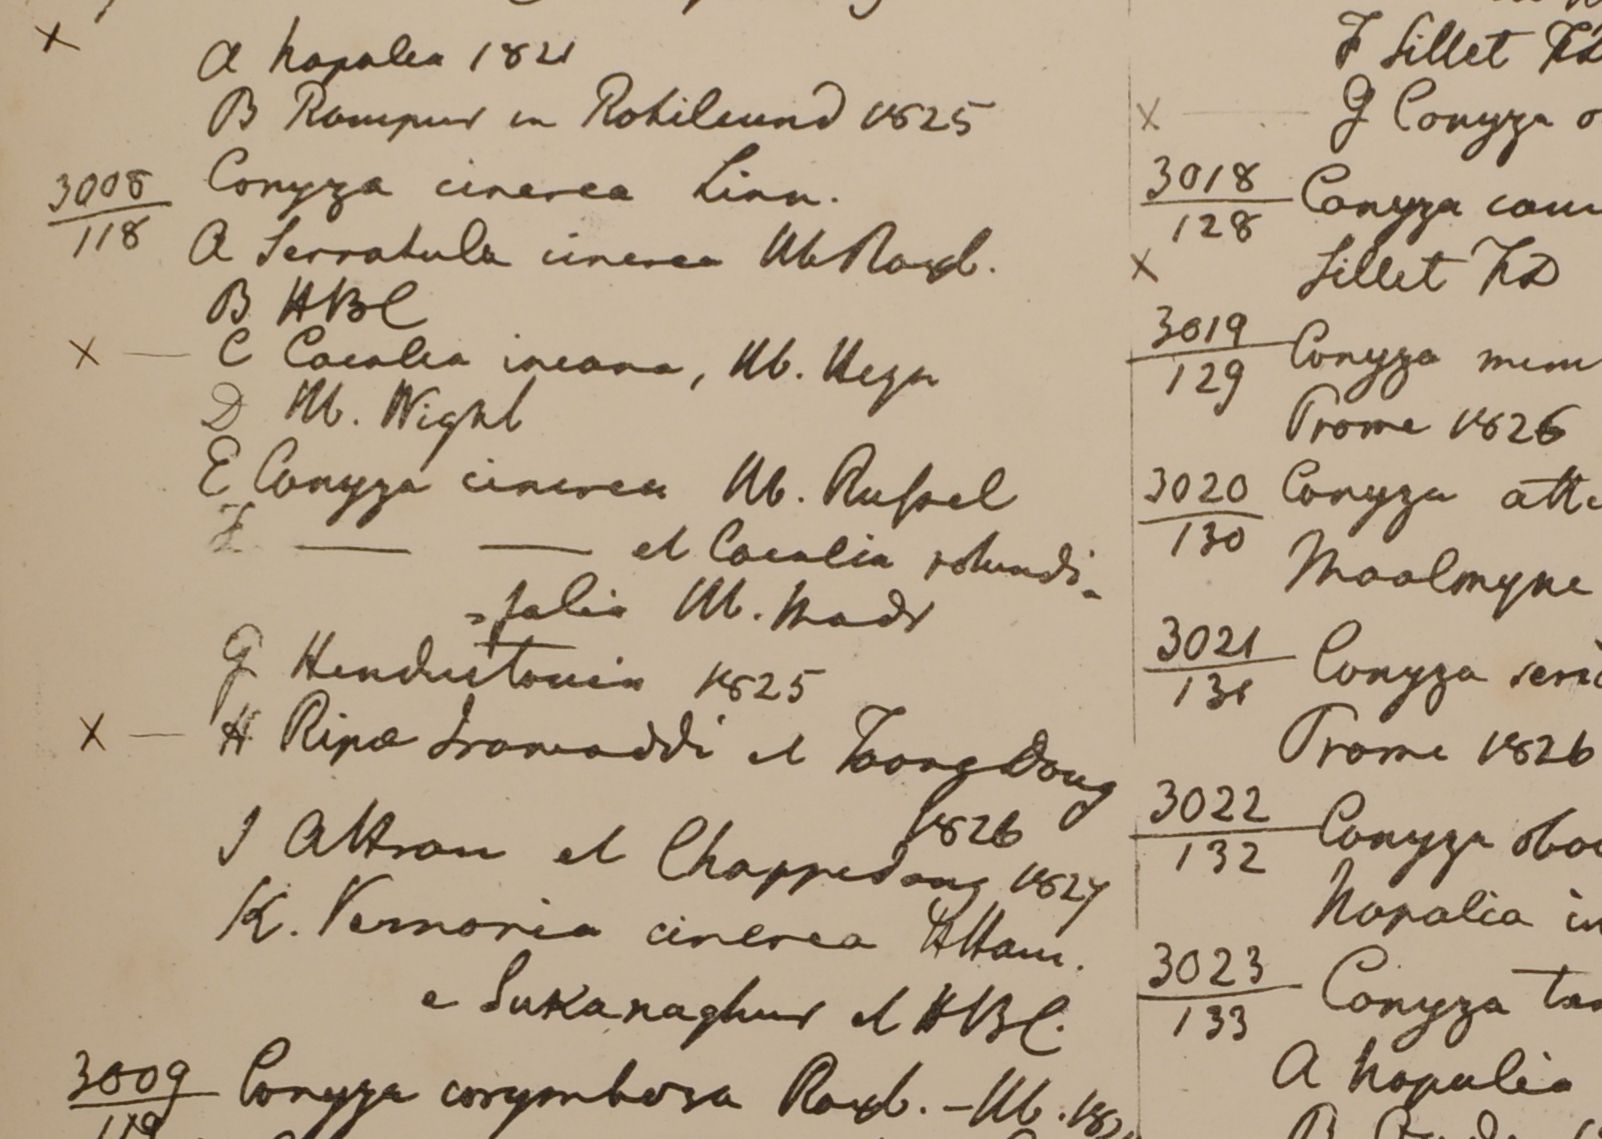 ×
A Napalea 1821
B Rampur in Rohilcund 1825
3008 Conyza cinerea Linn.
118
A Serratula cinerea Hb Roxb.
B HBC
× — C Cacalea incana, Hb. Heyn
D Hb. Wight
E Conyza cinerea Hb. Russel
F — — et Cacalia rotundi-
=folia Hb. Madr
G Hendustania 1825
× — H Ripæ Irawaddi et Taong Dong
1826
I Attran et Chappedong 1827
K. Vernonia cinerea HHam.
e Sukanaghur et HBC.
3009 Conyza corymbosa Roxb. — Hb. 182
119
F Sillet FD
× — G Conyza
3018 Conyza
128
× Sillet FD
3019 Conyza
129
Prome 1826
3020 Conyza
130
Moalmyne
3021 Conyza
131
Prome 1826
3022 Conyza
132
Napalia
3023 Conyza
133
A Napalia
B